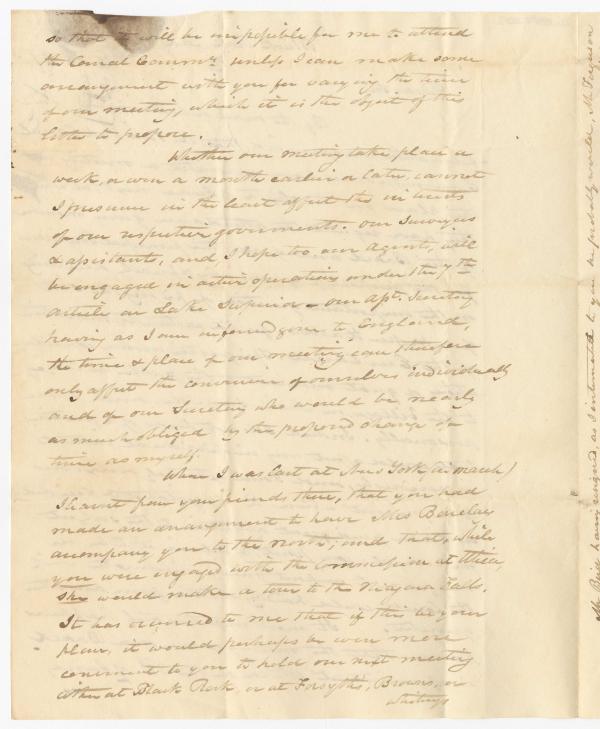 so that it will be impossible for me to attend
the Canal Commrs. unless I can make some
arrangement with you for varying the time
of our meeting, which it is the object of this
letter to propose.
Whether our meeting take place a
week, or even a month earlier or later, cannot
I presume in the least affect the interests
of our respective governments. Our Surveyors
& assistants, and, I hope too, our Agent, will
be engaged in active operations under the 7th
article on Lake Superior – our Asst. Secretary
having as I am informed gone to England,
the time & place of our meeting can therefore
only affect the convenience of ourselves individually
and of our Secretary who would be nearly
as much obliged by the proposed change of
time as myself.
When I was last at New York, (in March)
I learnt from your friends there, that you had
made an arrangement to have Mrs Barclay
accompany you to the North; and that, while
you were engaged with the Commission at Utica,
she would make a tour to the Niagara Falls.
It has occurred to me that if this be your
plan, it would perhaps be even more
convenient to you to hold our next meeting
either at Black Rock, or at Forsyths, Browns, or
Whitneys
Mr Bird having resigned, as I intimated to you he probably would, Mr Ferguson